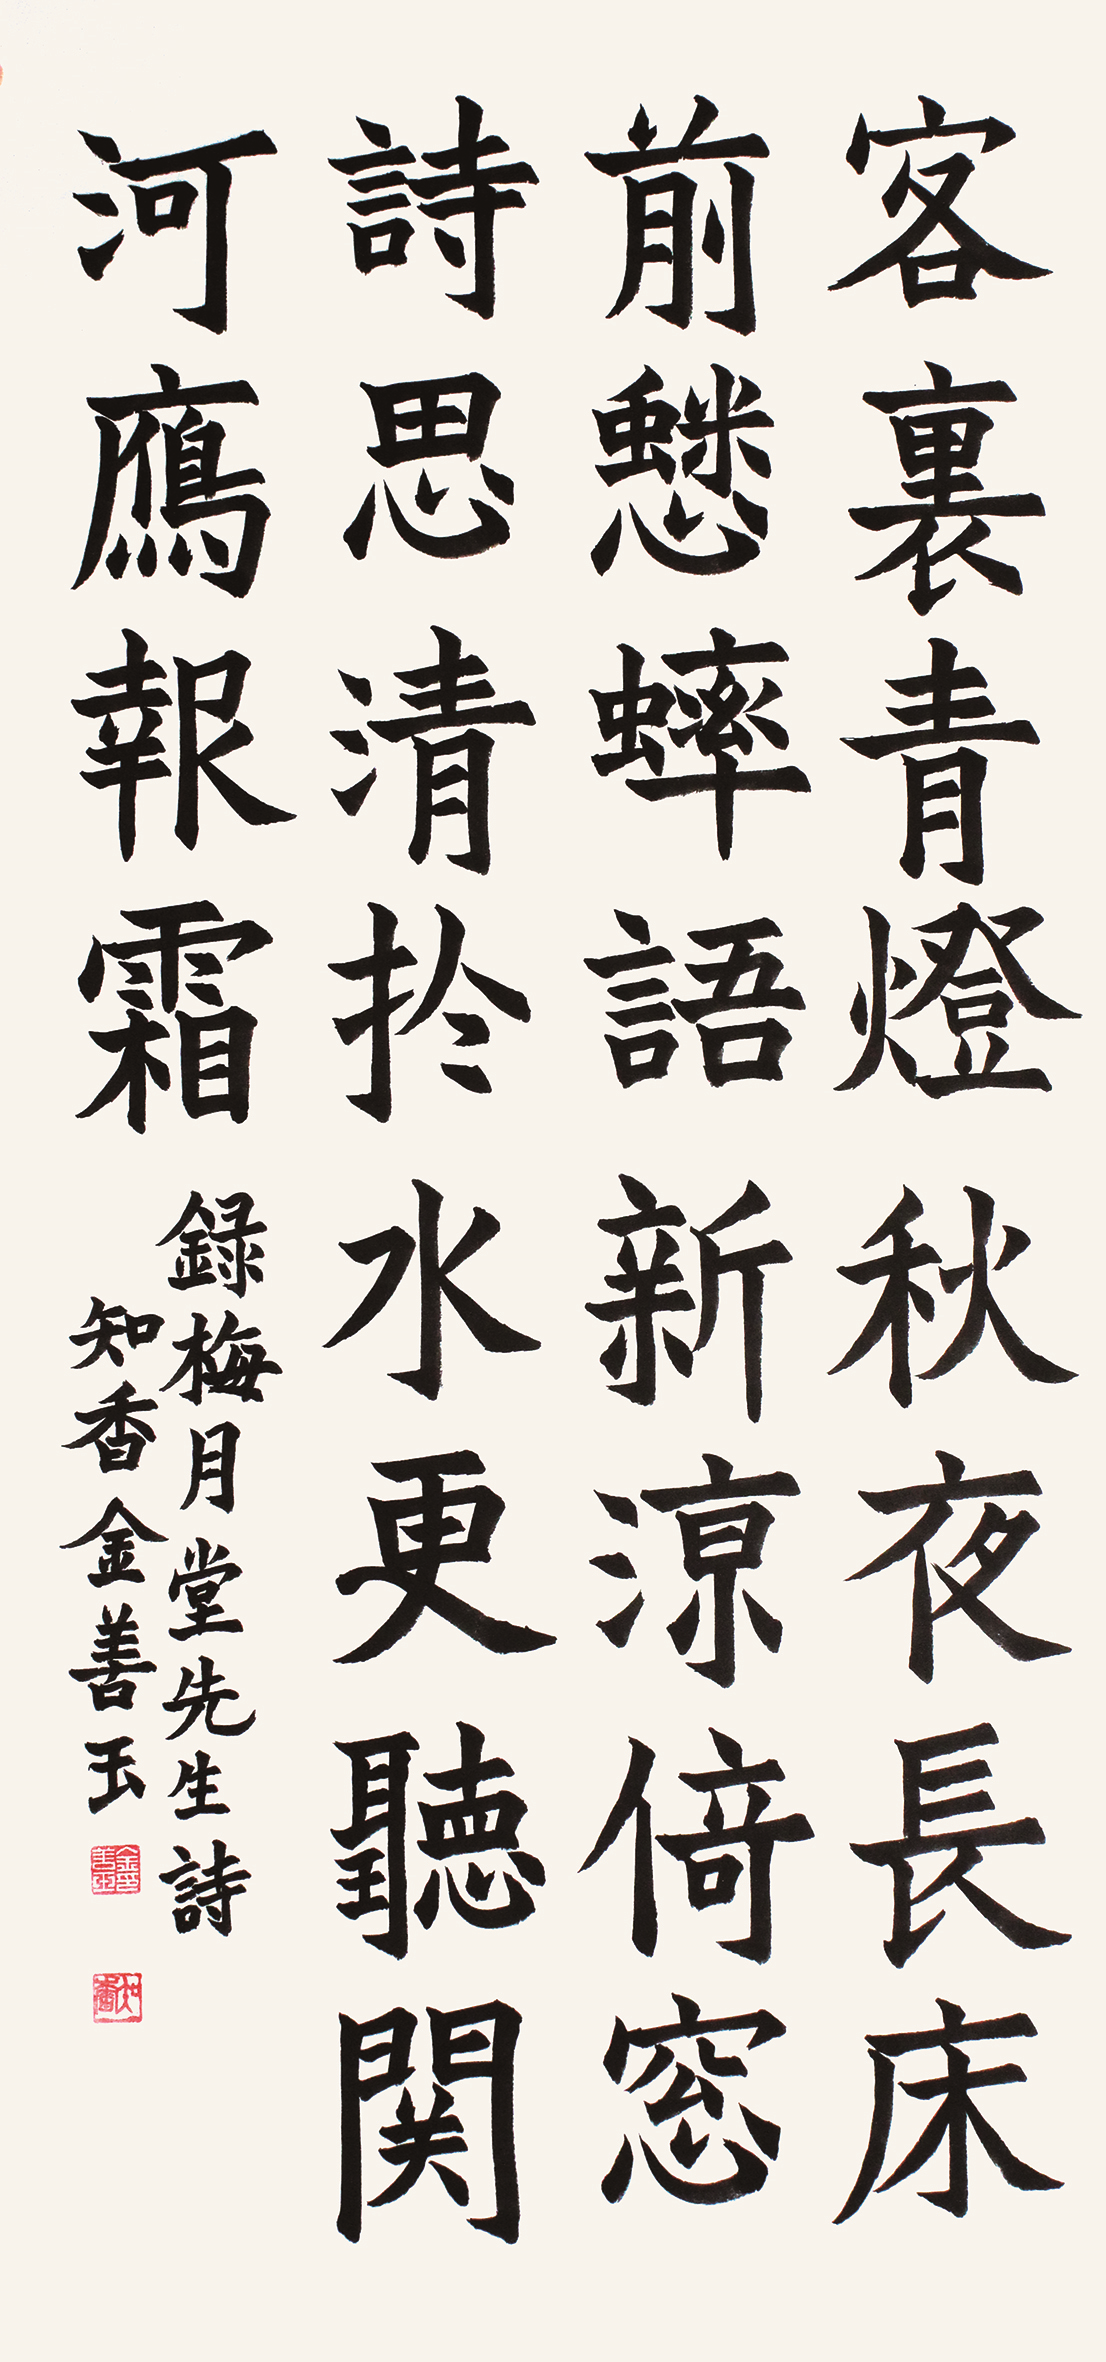 客裏青燈秋夜長床
前蟋蟀語新涼倚窓
詩思清於水更聽関
河鴈報霜
録梅月堂先生詩
知香金善玉